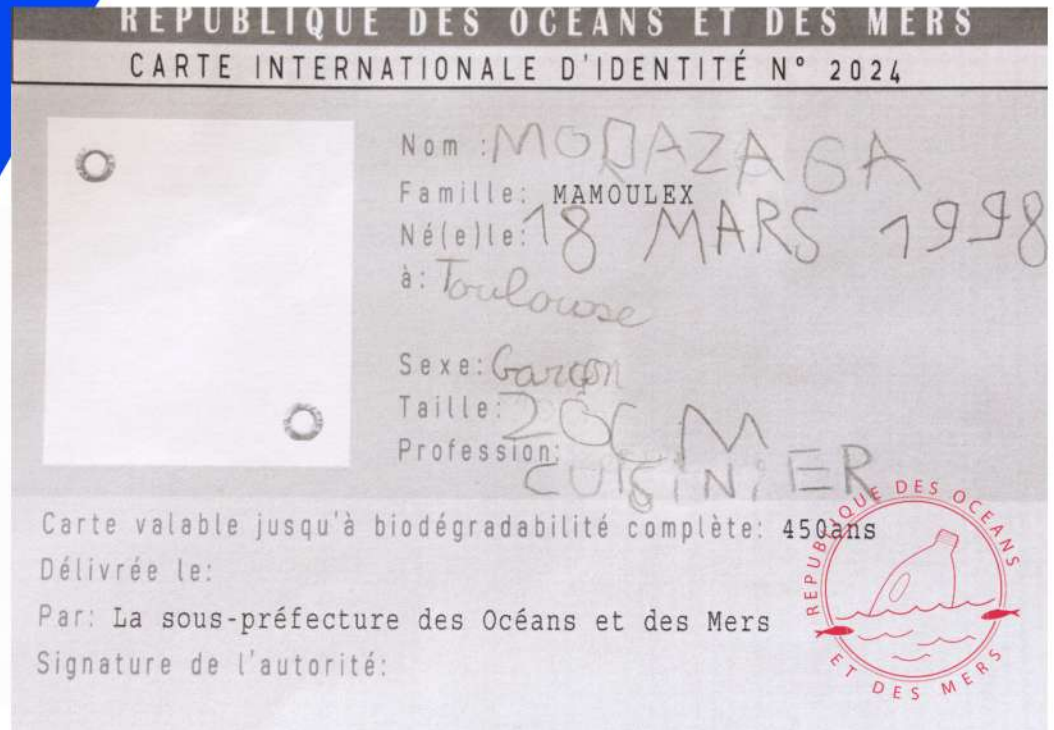 REPUBLIQUE DES OCEANS ET DES MERS
CARTE INTERNATIONALE D'IDENTITÉ N° 2024
Nom : MODAZAGA
Famille: MAMOULEX
Né(e)le: 18 MARS 1998
à: Toulouse
Sexe: Garçon
Taille: 26CM
Profession: CUISINIER
Carte valable jusqu'à biodégradabilité complète: 450ans
Délivrée le:
Par: La sous-préfecture des Océans et des Mers
Signature de l'autorité:
REPUBLIQUE DES OCEANS
ET DES MERS